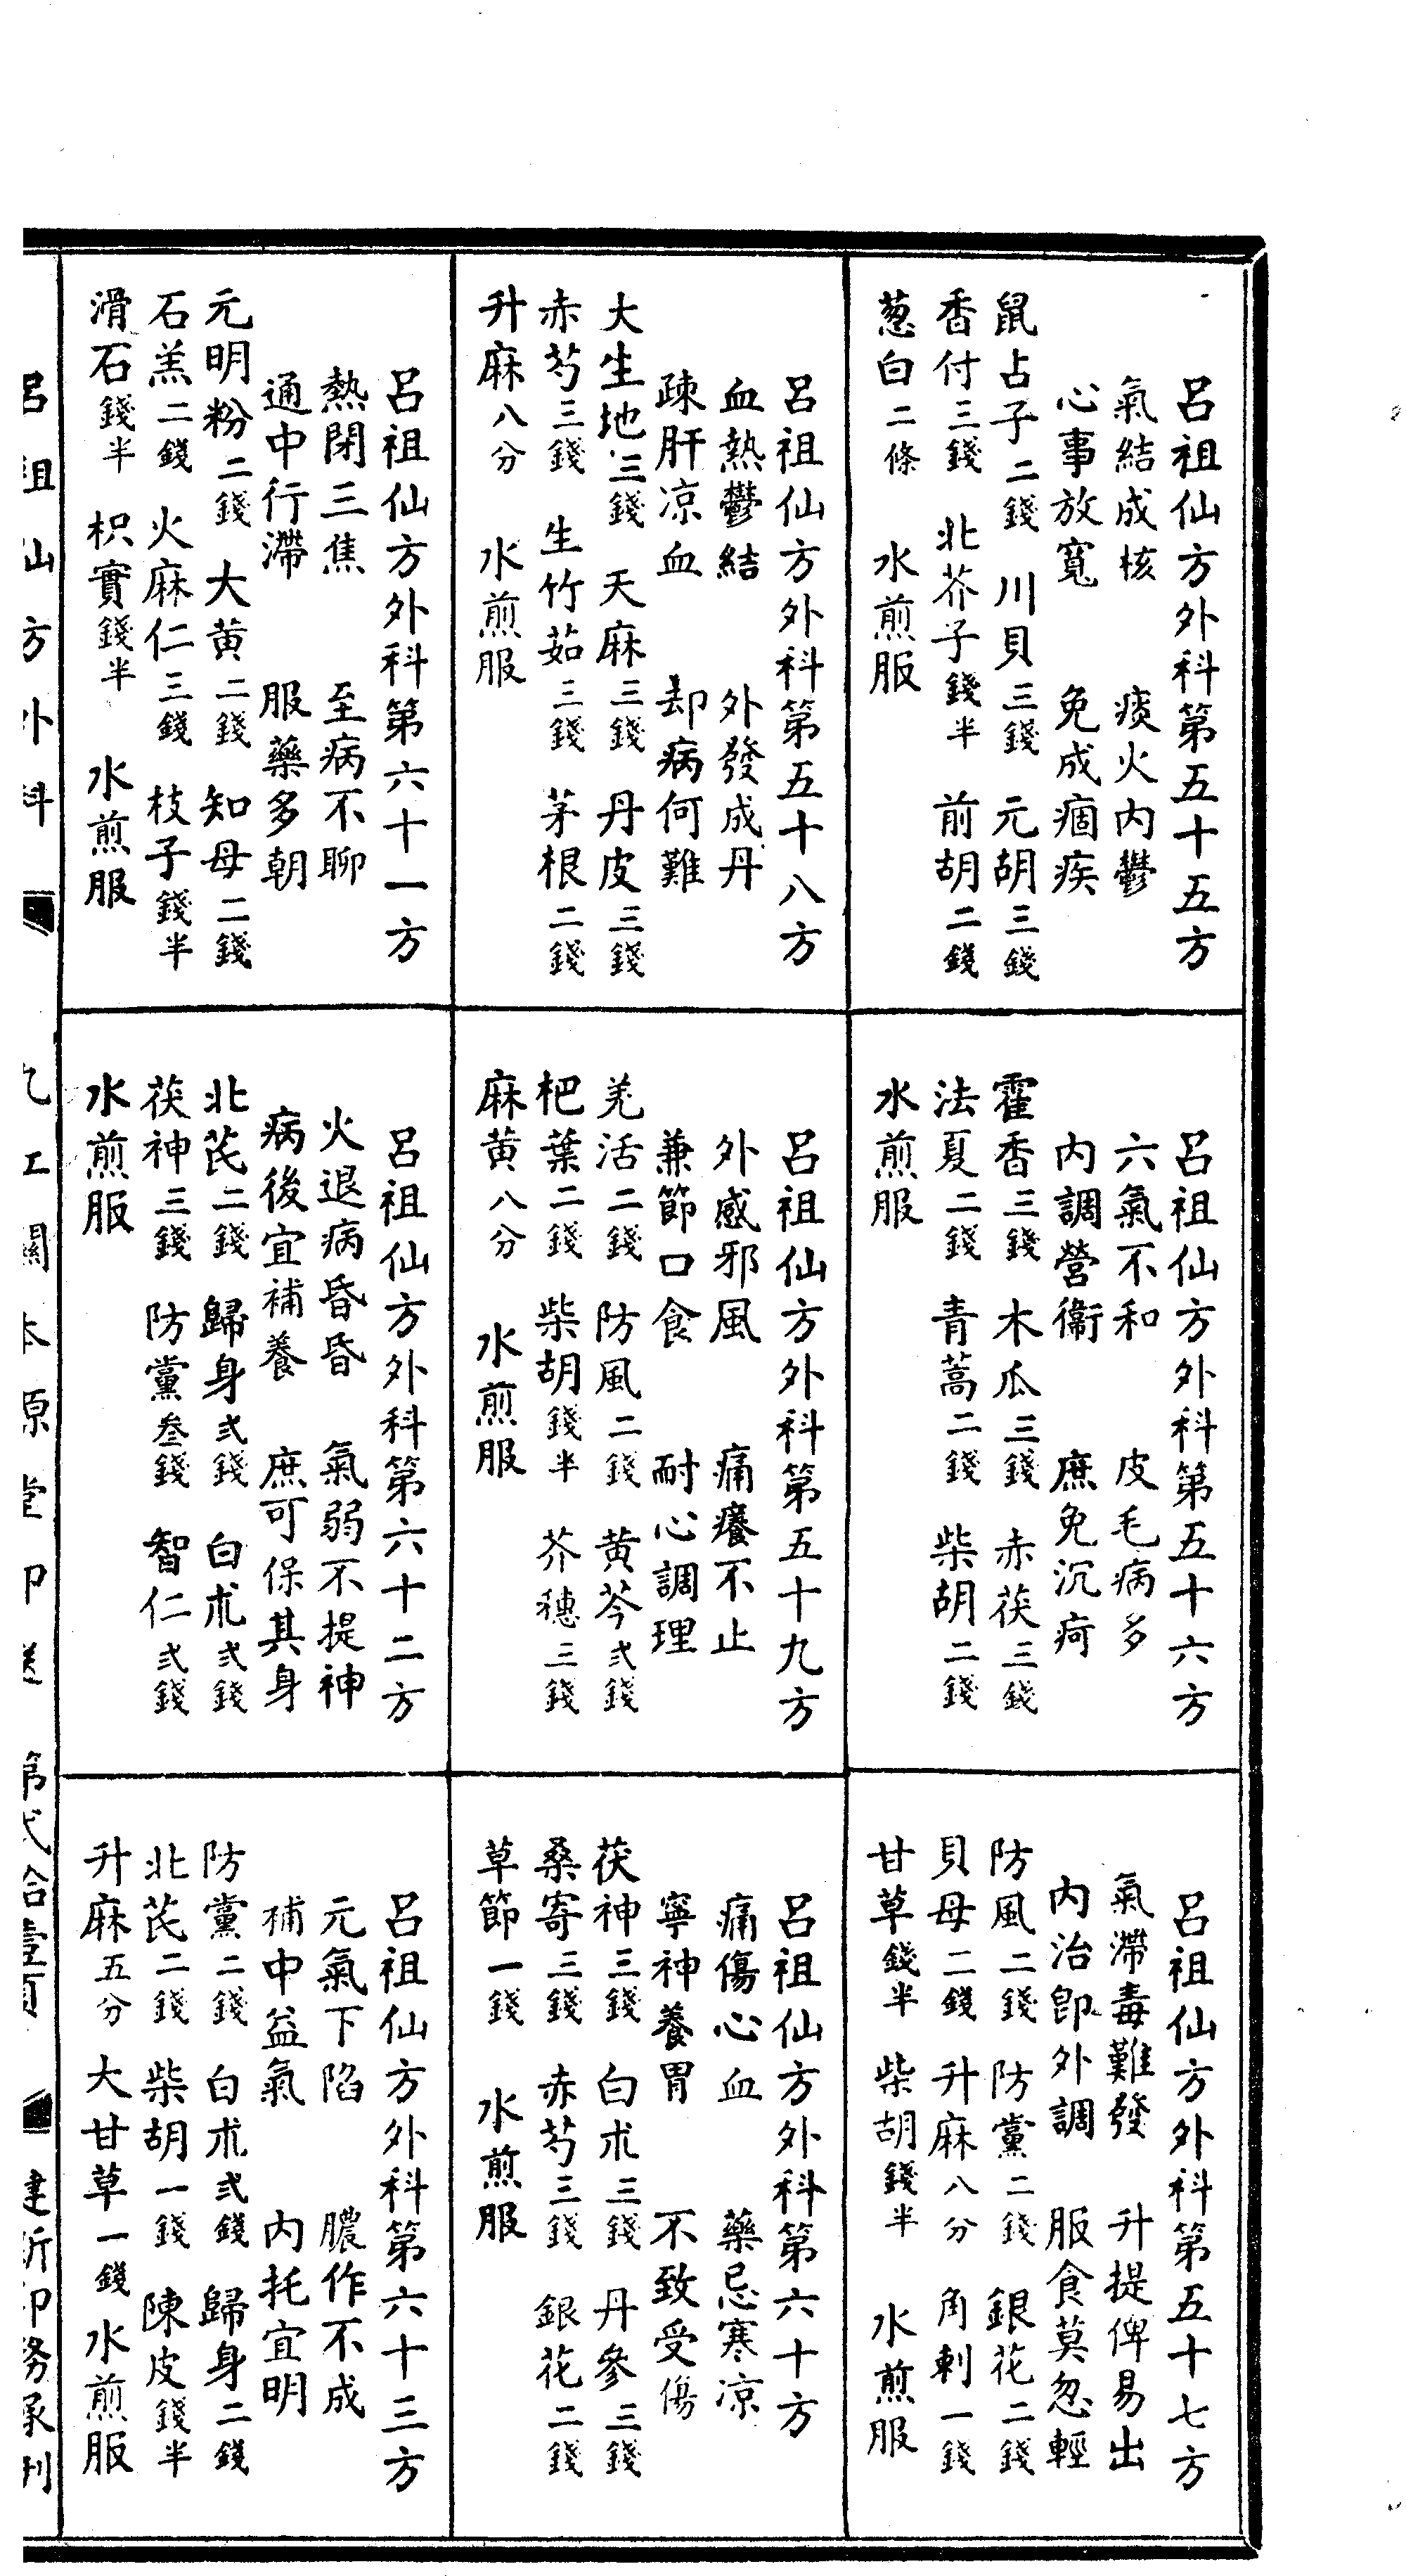 呂祖仙方外科第五十五方
氣結成核　痰火內鬱
心事放寬　免成痼疾
鼠占子二錢　川貝三錢　元胡三錢
香付三錢　北芥子錢半　前胡二錢
葱白二條　水煎服
呂祖仙方外科第五十六方
六氣不和　皮毛病多
內調營衞　庶免沉疴
霍香三錢　木瓜三錢　赤茯三錢
法夏二錢　青蒿二錢　柴胡二錢
水煎服
呂祖仙方外科第五十七方
氣滯毒難發　升提俾易出
內治卽外調　服食莫忽輕
防風二錢　防黨二錢　銀花二錢
貝母二錢　升麻八分　角刺一錢
甘草錢半　柴胡錢半　水煎服
呂祖仙方外科第五十八方
血熱鬱結　外發成丹
疎肝凉血　却病何難
大生地三錢　天麻三錢　丹皮三錢
赤芍三錢　生竹茹三錢　茅根二錢
升麻八分　水煎服
呂祖仙方外科第五十九方
外感邪風　痛癢不止
兼節口食　耐心調理
羌活二錢　防風二錢　黄芩弍錢
杷葉二錢　柴胡錢半　芥穗三錢
麻黄八分　水煎服
呂祖仙方外科第六十方
痛傷心血　藥忌寒凉
寧神養胃　不致受傷
茯神三錢　白朮三錢　丹參三錢
桑寄三錢　赤芍三錢　銀花二錢
草節一錢　水煎服
呂祖仙方外科第六十一方
熱閉三焦　至病不聊
通中行滯　服藥多朝
元明粉二錢　大黄二錢　知母二錢
石羔二錢　火麻仁三錢　枝子錢半
滑石錢半　枳實錢半　水煎服
呂祖仙方外科第六十二方
火退病昏昏　氣弱不提神
病後宜補養　庶可保其身
北芪二錢　歸身弍錢　白朮弍錢
茯神三錢　防黨叁錢　智仁弍錢
水煎服
呂祖仙方外科第六十三方
元氣下陷　膿作不成
補中益氣　內托宜明
防黨二錢　白朮弍錢　歸身二錢
北芪二錢　柴胡一錢　陳皮錢半
升麻五分　大甘草一錢　水煎服
呂祖仙方外科　本源堂印送　第弍拾壹頁　建新印務承刊